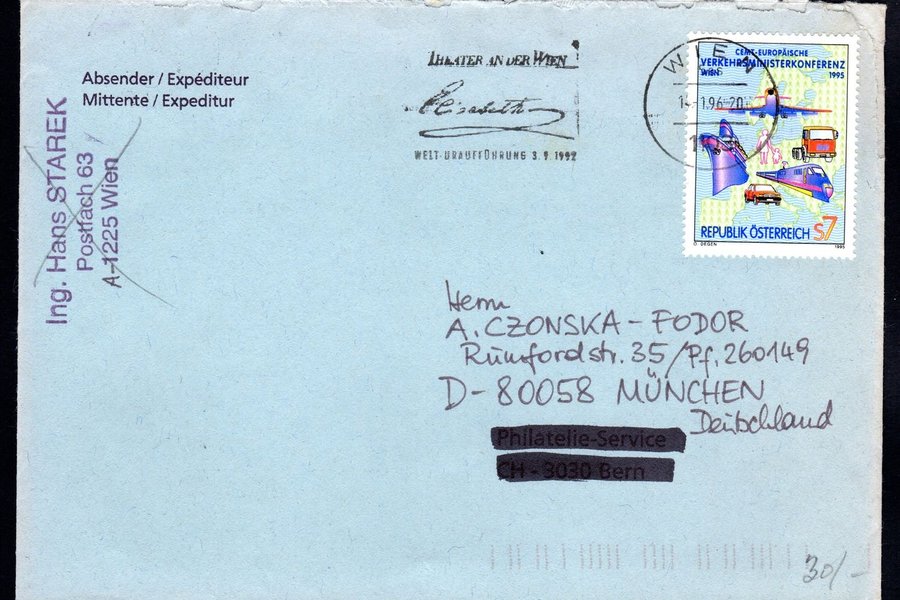 Absender / Expéditeur
Mittente / Expeditur
Ing. Hans STAREK
Postfach 63
A-1225 Wien
THEATER AN DER WIEN
Elisabeth
WELT-URAUFFÜHRUNG 3.9.1992
WIEN
1.96-20
CEMT-EUROPÄISCHE
VERKEHRSMINISTERKONFERENZ
WIEN 1995
REPUBLIK ÖSTERREICH S7
O. DEGEN 1995
Herrn
A. CZONSKA-FODOR
Rumfordstr. 35/Pf. 260149
D-80058 MÜNCHEN
Deutschland
Philatelie-Service
CH - 3030 Bern
30/-